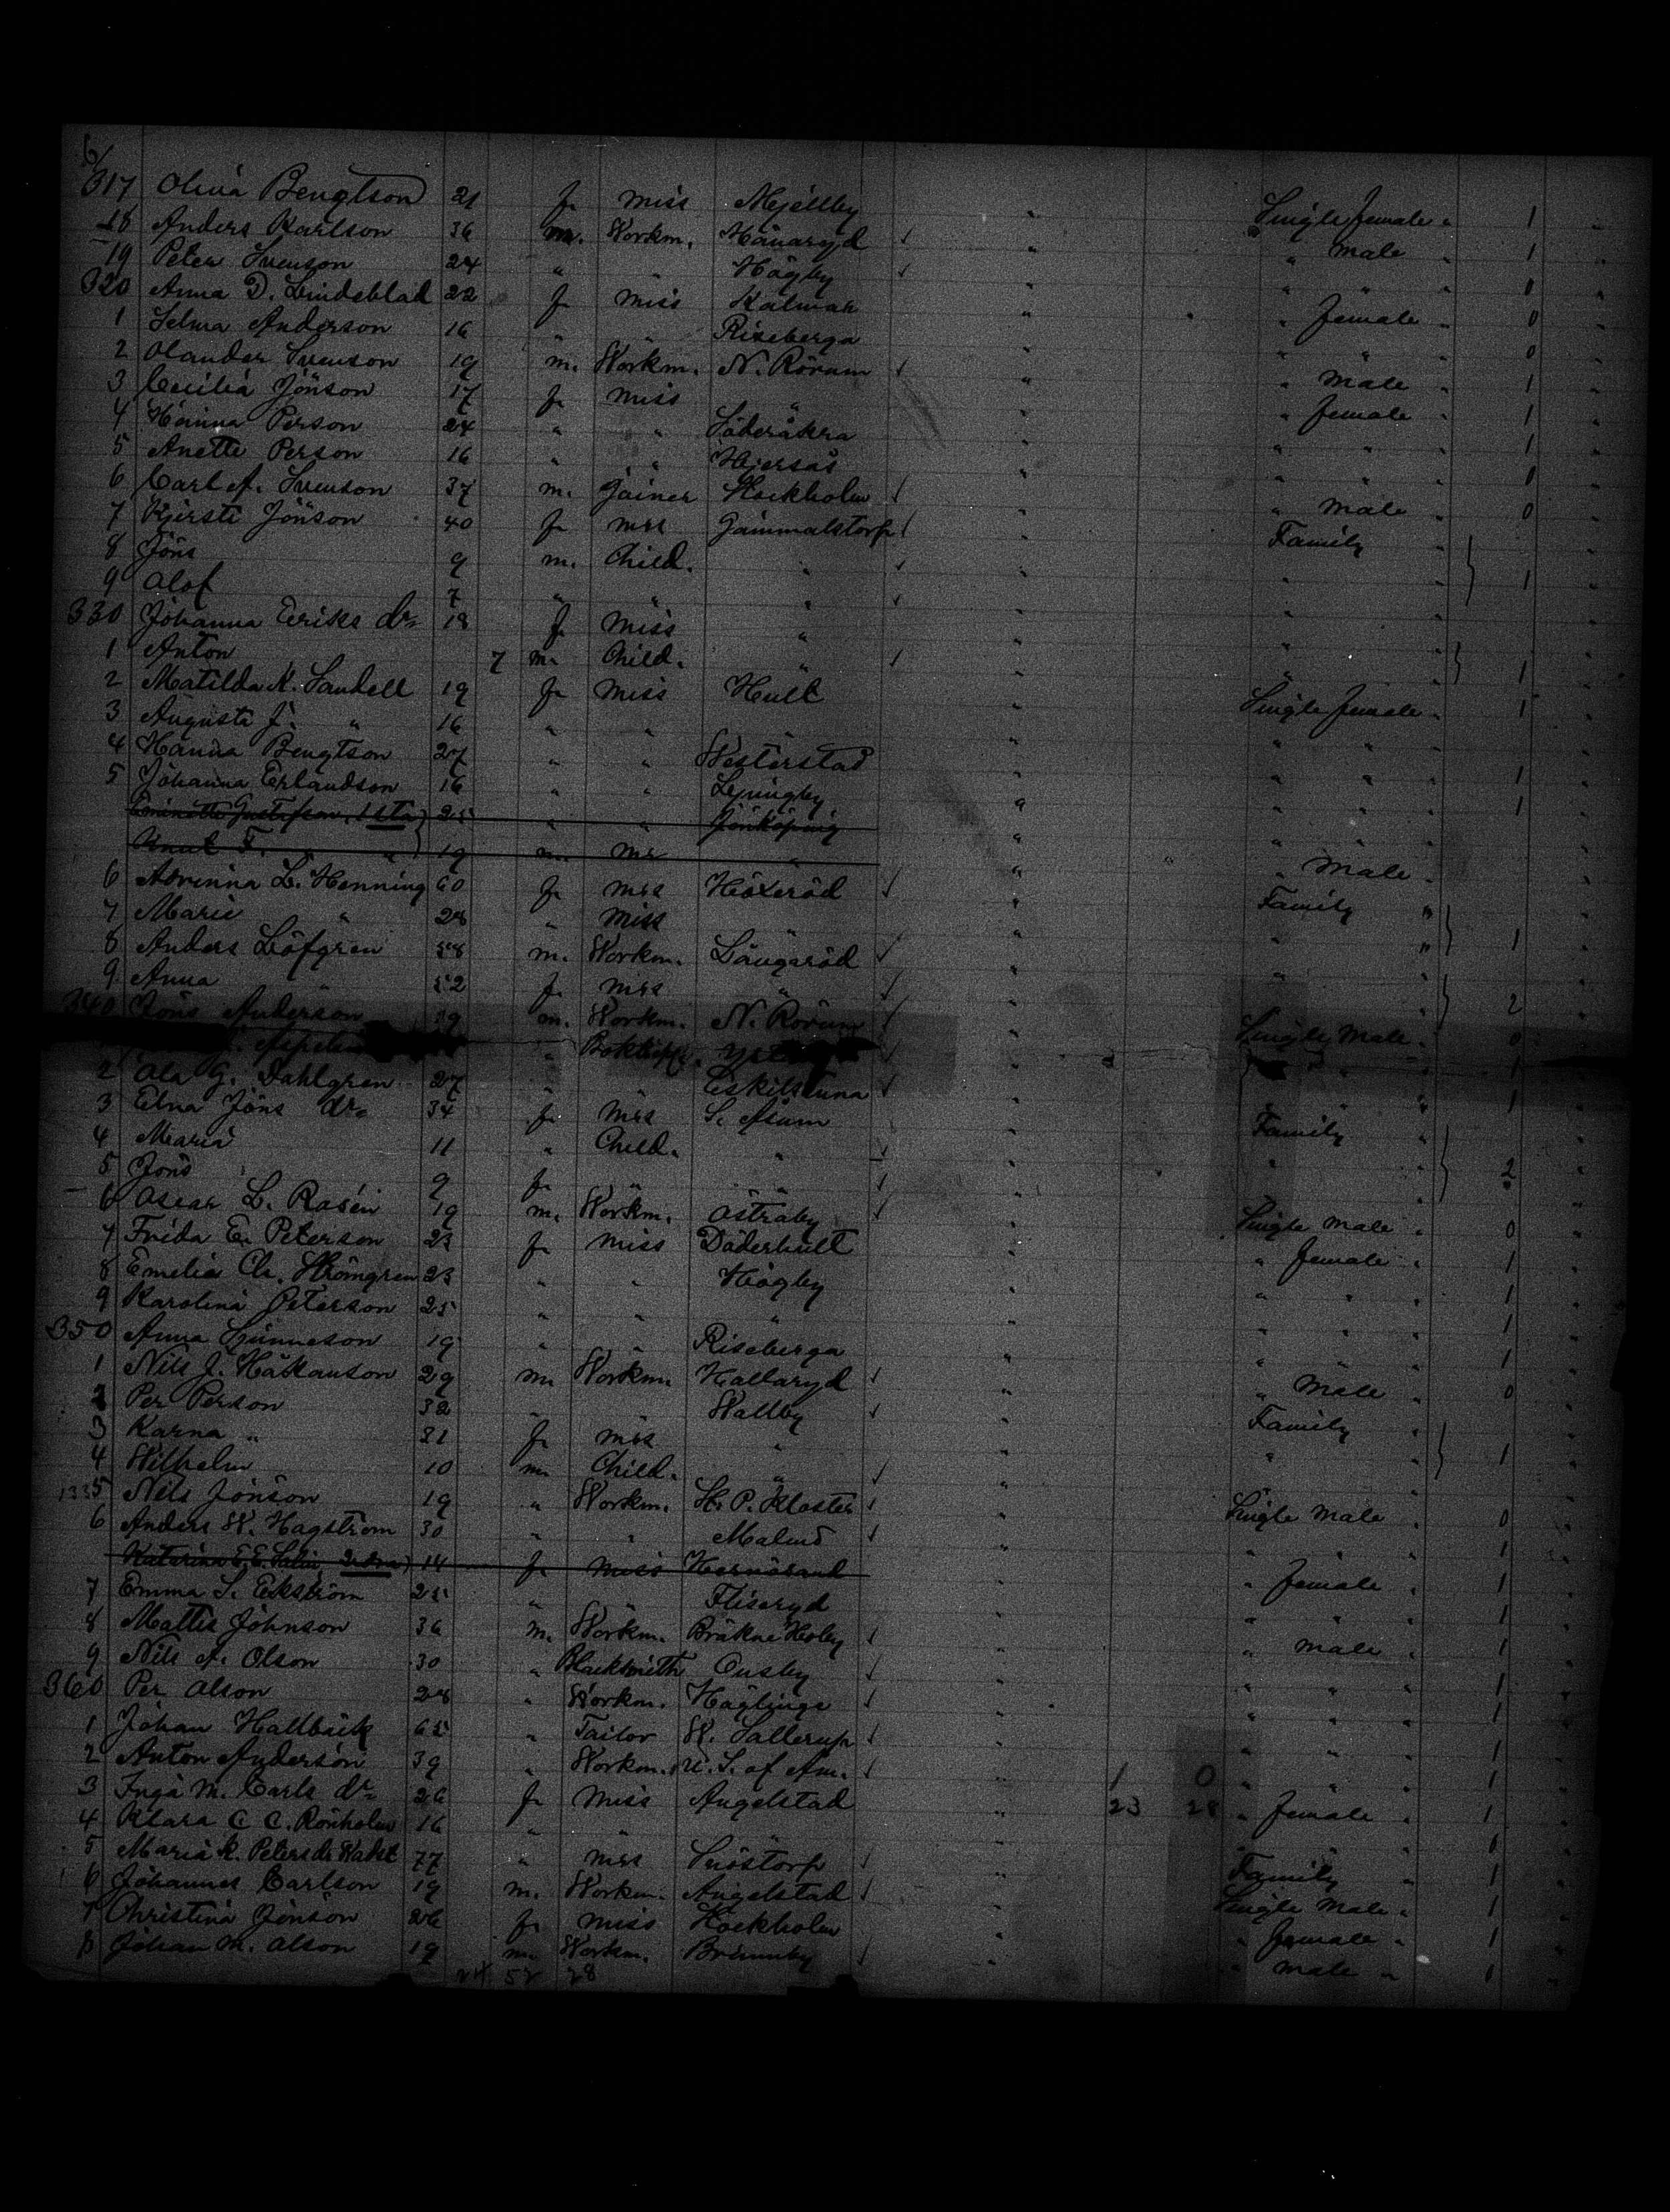 6/
317 Olivia Bengtson 21 f. Miss Mjellby " Single female " 1 "
18 Anders Karlson 36 m. Workm. Hånaryd " " Male " 1 "
19 Peter Svenson 24 " " Högby " " " " 1 "
320 Anna D. Lindeblad 22 f. Miss Kalmar " " female " 0 "
1 Selma Anderson 16 " " Riseberga " " " " 0 "
2 Olander Svenson 19 m. Workm. N. Rörum " " Male " 1 "
3 Cecilia Jönson 17 f. Miss " " " female " 1 "
4 Hanna Person 24 " " Söderåkra " " " " 1 "
5 Anette Person 16 " " Hjersås " " " " 0 "
6 Carl A. Svenson 37 m. Joiner Stockholm " " Male " 0 "
7 Kjersti Jönson 40 f. Mrs Gammalstorp " Family "
8 Jöns 9 m. Child. " " " " 1 "
9 Olof 7 " " " " " "
330 Johanna Eriks dr. 18 f. Miss " " " "
1 Anton 7 m. Child. " " " " 1 "
2 Matilda N. Sandell 19 f. Miss Hult " Single female " 1 "
3 Augusta J. " 16 " " " " " "
4 Hanna Bengtson 27 " " Westerstad " " " " 1 "
5 Johanna Erlandson 16 " " Ljungby " " " " 1 "
Gustafson, 1sta) 25 " " Jönköping " "
Knut F. " " 19 m. Mr " " " Male "
6 L. Henning 60 f. Mrs Höxeröd " Family "
7 Marie " 28 " Miss " " " " 1 "
8 Anders Löfgren 58 m. Workm. Långaröd " " "
9 Anna " 52 f. Mrs " " " 2 "
340 Jöns Anderson 39 m. Workm. N. Rörum " Single Male " 0 "
" " " " 1 "
2 Ola G. Dahlgren 27 " Eskilstuna " " " " 1 "
3 Elna Jöns dr. 34 f. Mrs S. Åsum " Family "
4 Maria 11 " Child. " " " " 2 "
5 Jöns 9 f. " " " "
6 Oscar L. Rosén 19 m. Workm. Östraby " Single Male " 0 "
7 Frida E. Peterson 23 f. Miss Döderhult " " female " 1 "
8 Emelia Ch. Strömgren 23 " " Högby " " " " 1 "
9 Karolina Peterson 25 " " " " " " " 1 "
350 Anna Gunneson 19 " " Riseberga " " " " 1 "
1 Nils J. Håkanson 29 m. Workm. Hallaryd " " Male " 0 "
2 Per Person 32 " " Wallby " Family "
3 Karna " 31 f. Mrs " " " " 1 "
4 Wilhelm 10 m. Child. " " "
5 Nils Jönson 19 " Workm. St. P. Kloster " Single Male " 0 "
6 Anders W. Hagström 30 " " Malmö " " " " 1 "
Katarina E. E. 14 f. Miss Hernösand " " female " 1 "
7 Emma S. Ekström 25 " " Fliseryd " " " " 1 "
8 Mattis Johnson 36 m. Workm. Bräkne Hoby " " Male " 1 "
9 Nils A. Olson 30 " Blacksmith Ousby " " " " 1 "
360 Per Olson 28 " Workm. Häglinge " " " " 1 "
1 Johan Hallbäck 65 " Tailor W. Sallerup " " " " 1 "
2 Anton Anderson 39 " Workm. U. S. of Am. " 1 0 " " " 1 "
3 Inga M. Carls dr. 26 f. Miss Angelstad " 23 28 " female " 1 "
4 Klara C C. Rönholm 16 " " " " " 1 "
5 Maria K. Peters dr 77 " Mrs Snöstorp Family " 1 "
6 Johannes Carlson 19 m. Workm. Angelstad Single Male " 1 "
7 Christina Jönson 26 f. Miss Stockholm " female " 1 "
8 Johan M. Olson 19 m. Workm. Brunnby " Male " 1 "
24 52 28